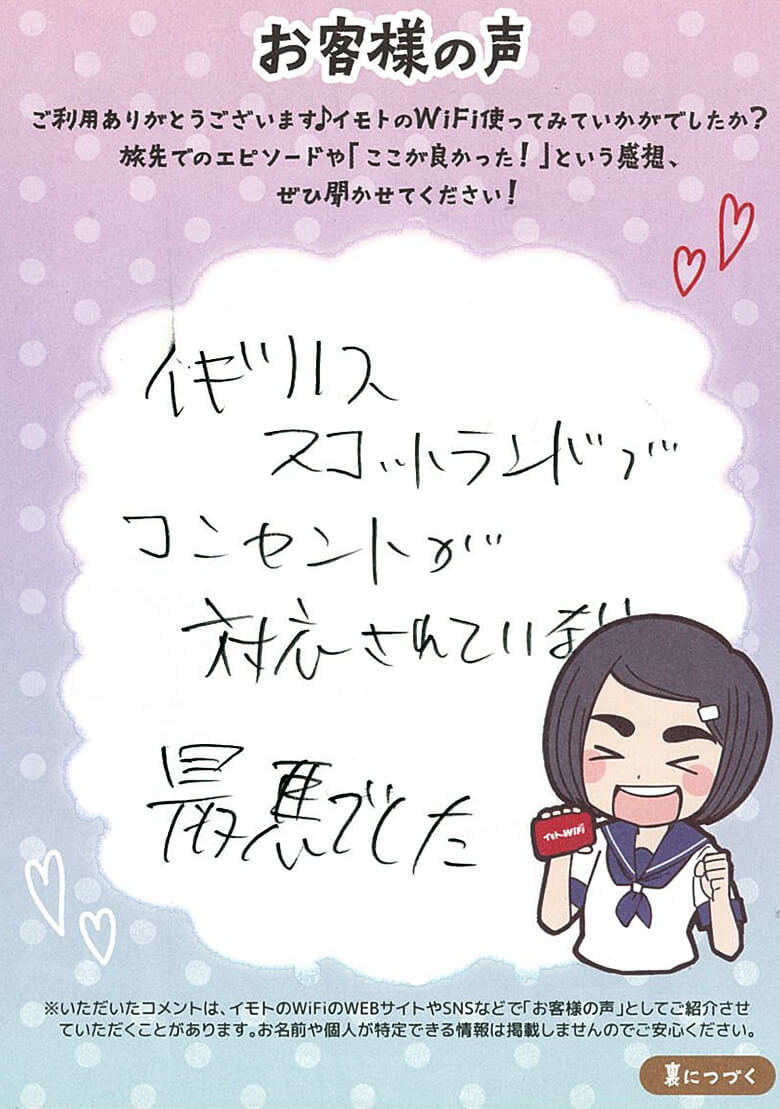 お客様の声
ご利用ありがとうございます♪イモトのWiFi使ってみていかがでしたか?
旅先でのエピソードや「ここが良かった!」という感想、
ぜひ聞かせてください!
イギリス
スコットランドで
コンセントが
対応されてい
最高でした
イモトのWiFi
※いただいたコメントは、イモトのWiFiのWEBサイトやSNSなどで「お客様の声」としてご紹介させ
ていただくことがあります。お名前や個人が特定できる情報は掲載しませんのでご安心ください。
裏につづく